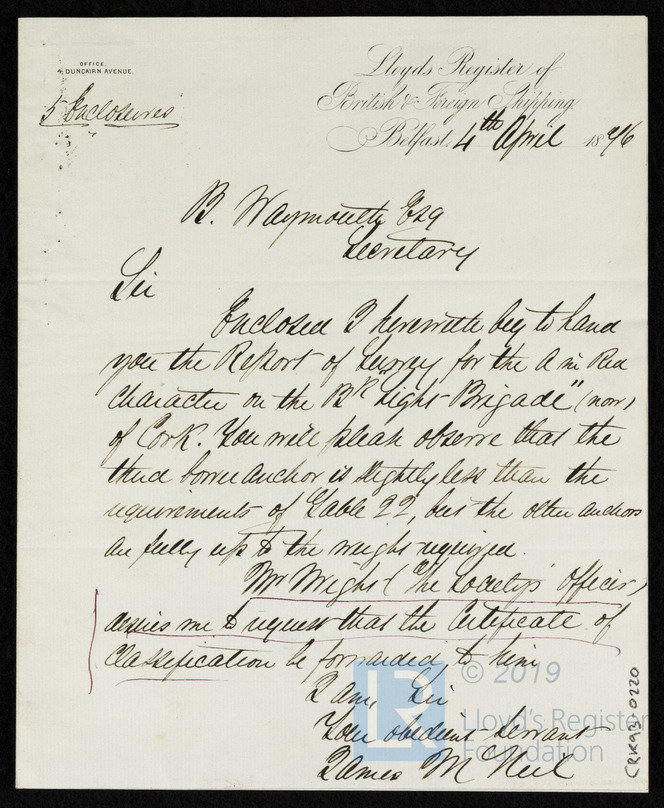 OFFICE,
4, DUNCAIRN AVENUE.
5 Enclosures
Lloyds Register of
British & Foreign Shipping
Belfast, 4th April 1876
B. Waymouth Esq
Secretary
Sir
Enclosed I herewith beg to hand
you the Report of Survey for the A in Red
Character on the Bk "Light Brigade" (now)
of Cork. You will please observe that the
third bower anchor is slightly less than the
requirements of Table 22, but the other anchors
are fully up to the weight required.
Mr Wright (The Society's Officer)
desires me to request that the Certificate of
Classification be forwarded to him
I am, Sir
Your obedient servant
James McNeil
© 2019
Lloyd's Register
Foundation
LR
CRK93-0220